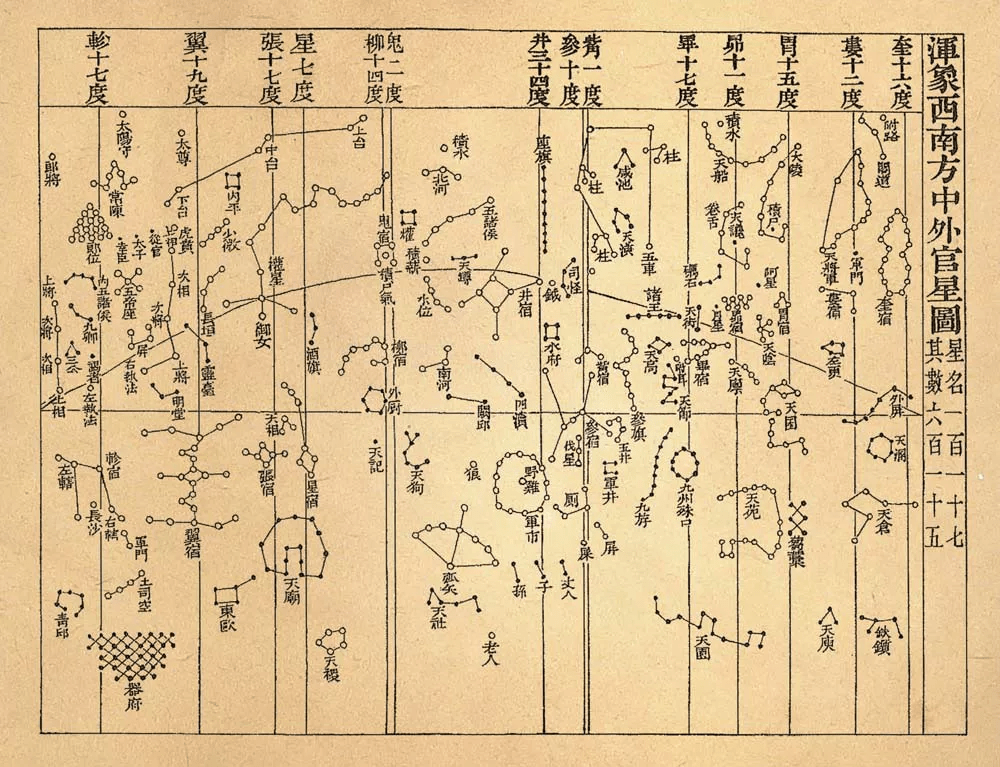 渾象西南方中外官星圖
星名一百一十七
其數六百一十五
奎十六度
婁十二度
胃十五度
昴十一度
畢十七度
觜一度
參十度
井三十四度
鬼二度
柳十四度
星七度
張十七度
翼十九度
軫十七度
附路
閣道
軍門
天將軍
奎宿
婁宿
外屏
天溷
天倉
天庾
鈇鑕
大陵
積尸
積水
天船
卷舌
天讒
礪石
阿星
胃宿
昴宿
月星
天街
天陰
天廩
天囷
天苑
芻藁
畢宿
附耳
天節
天高
諸王
九州殊口
天園
柱
咸池
天潢
柱
柱
五車
座旗
司怪
鉞
水府
觜宿
參旗
參宿
伐星
玉井
軍井
九斿
屏
厠
屎
丈人
子
孫
積水
北河
五諸侯
積薪
天罇
水位
井宿
南河
闕邱
四瀆
狼
野雞
軍市
弧矢
天社
老人
爟
鬼宿
積尸氣
柳宿
外厨
天記
天狗
上台
中台
下台
內平
太尊
少微
軒轅
御女
酒旗
長垣
靈臺
明堂
天相
張宿
星宿
天廟
東甌
天稷
翼宿
太陽守
常陳
郎將
郎位
幸臣
太子
從官
虎賁
五帝座
內五諸侯
九卿
三公
謁者
屏
上相
次相
次將
上將
上將
次將
次相
上相
右執法
左執法
軫宿
左轄
右轄
長沙
軍門
土司空
青邱
器府